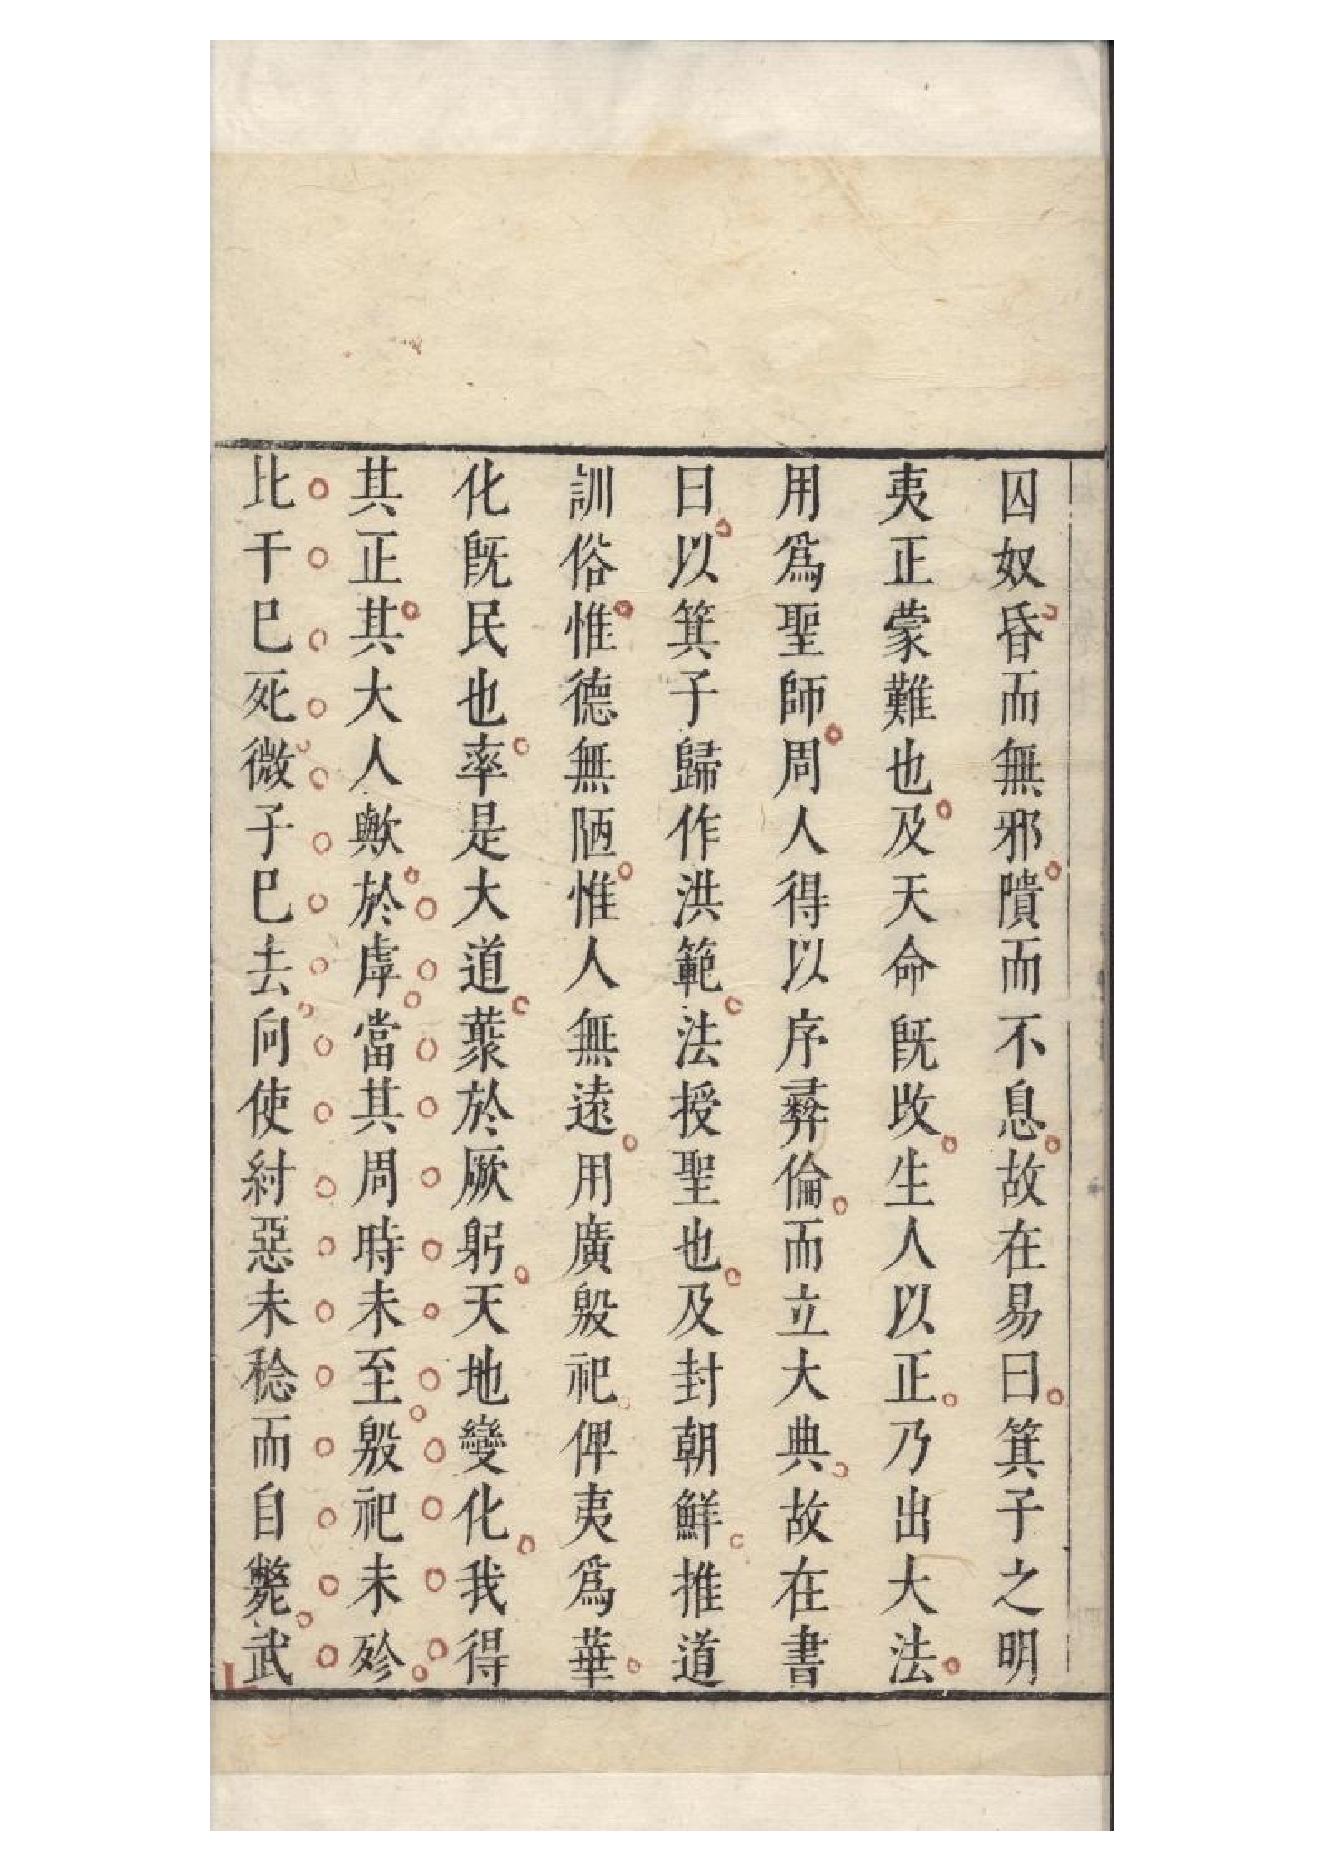 囚奴昏而無邪隤而不息故在易曰箕子之明
夷正蒙難也及天命旣改生人以正乃出大法
用爲聖師周人得以序彛倫而立大典故在書
曰以箕子歸作洪範法授聖也及封朝鮮推道
訓俗惟德無陋惟人無遠用廣殷祀俾夷爲華
化旣民也率是大道藂於厥躬天地變化我得
其正其大人歟於虖當其周時未至殷祀未殄
比干巳死微子巳去向使紂惡未稔而自斃武